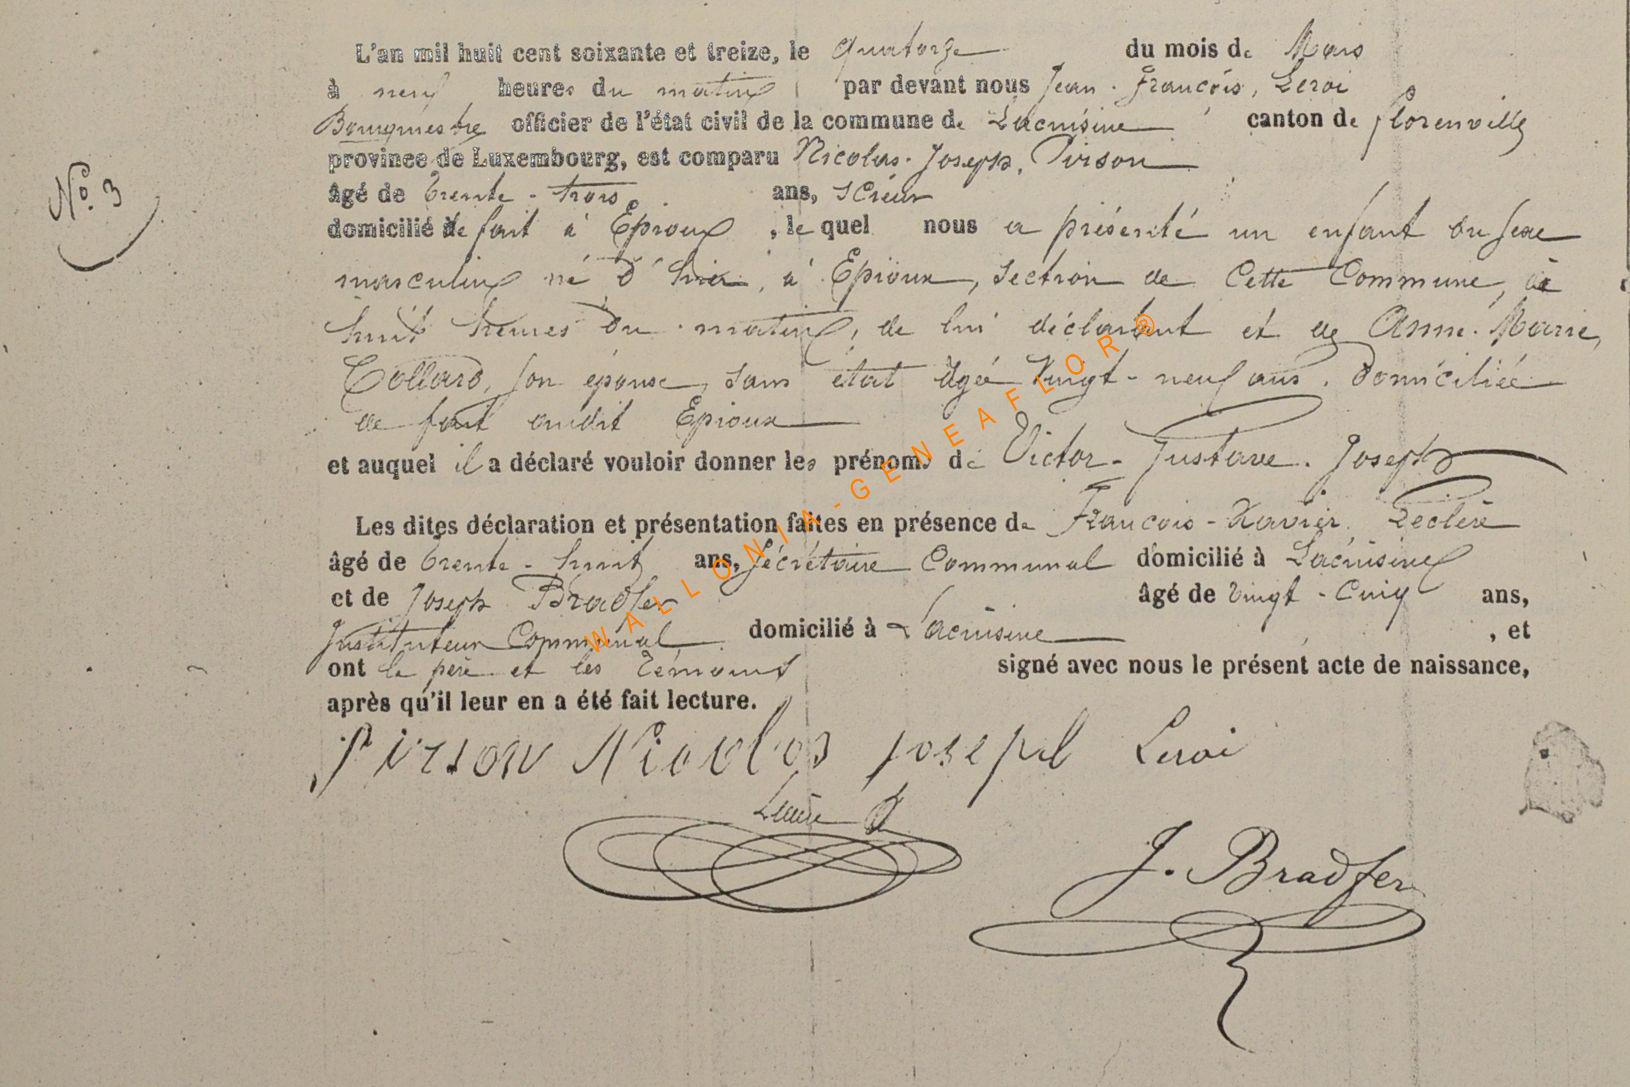 L'an mil huit cent soixante et treize, le quatorze du mois de Mars
à neuf heures du matin par devant nous Jean-François, Leroi
Bourgmestre officier de l'état civil de la commune de Lacuisine canton de Florenville
province de Luxembourg, est comparu Nicolas-Joseph, Pirson
No. 3
âgé de trente-trois ans, scieur
domicilié de fait à Epioux, le quel nous a présenté un enfant du sexe
masculin né d'hier, à Epioux, section de cette Commune, à
huit heures du matin, de lui déclarant et de Anne-Marie,
Collard, son épouse, sans état âgée vingt-neuf ans, domiciliée
de fait audit Epioux
et auquel il a déclaré vouloir donner les prénoms de Victor-Gustave-Joseph
Les dites déclaration et présentation faites en présence de François-Xavier Leclère
âgé de trente-huit ans, Sécrétaire Communal domicilié à Lacuisine
et de Joseph Bradfer âgé de vingt-cinq ans,
Instituteur Communal domicilié à Lacuisine, et
ont le père et les témoins signé avec nous le présent acte de naissance,
après qu'il leur en a été fait lecture.
Pirson Nicolas Joseph Leroi
J. Bradfer
WALLONIA-GENEAFLOR®